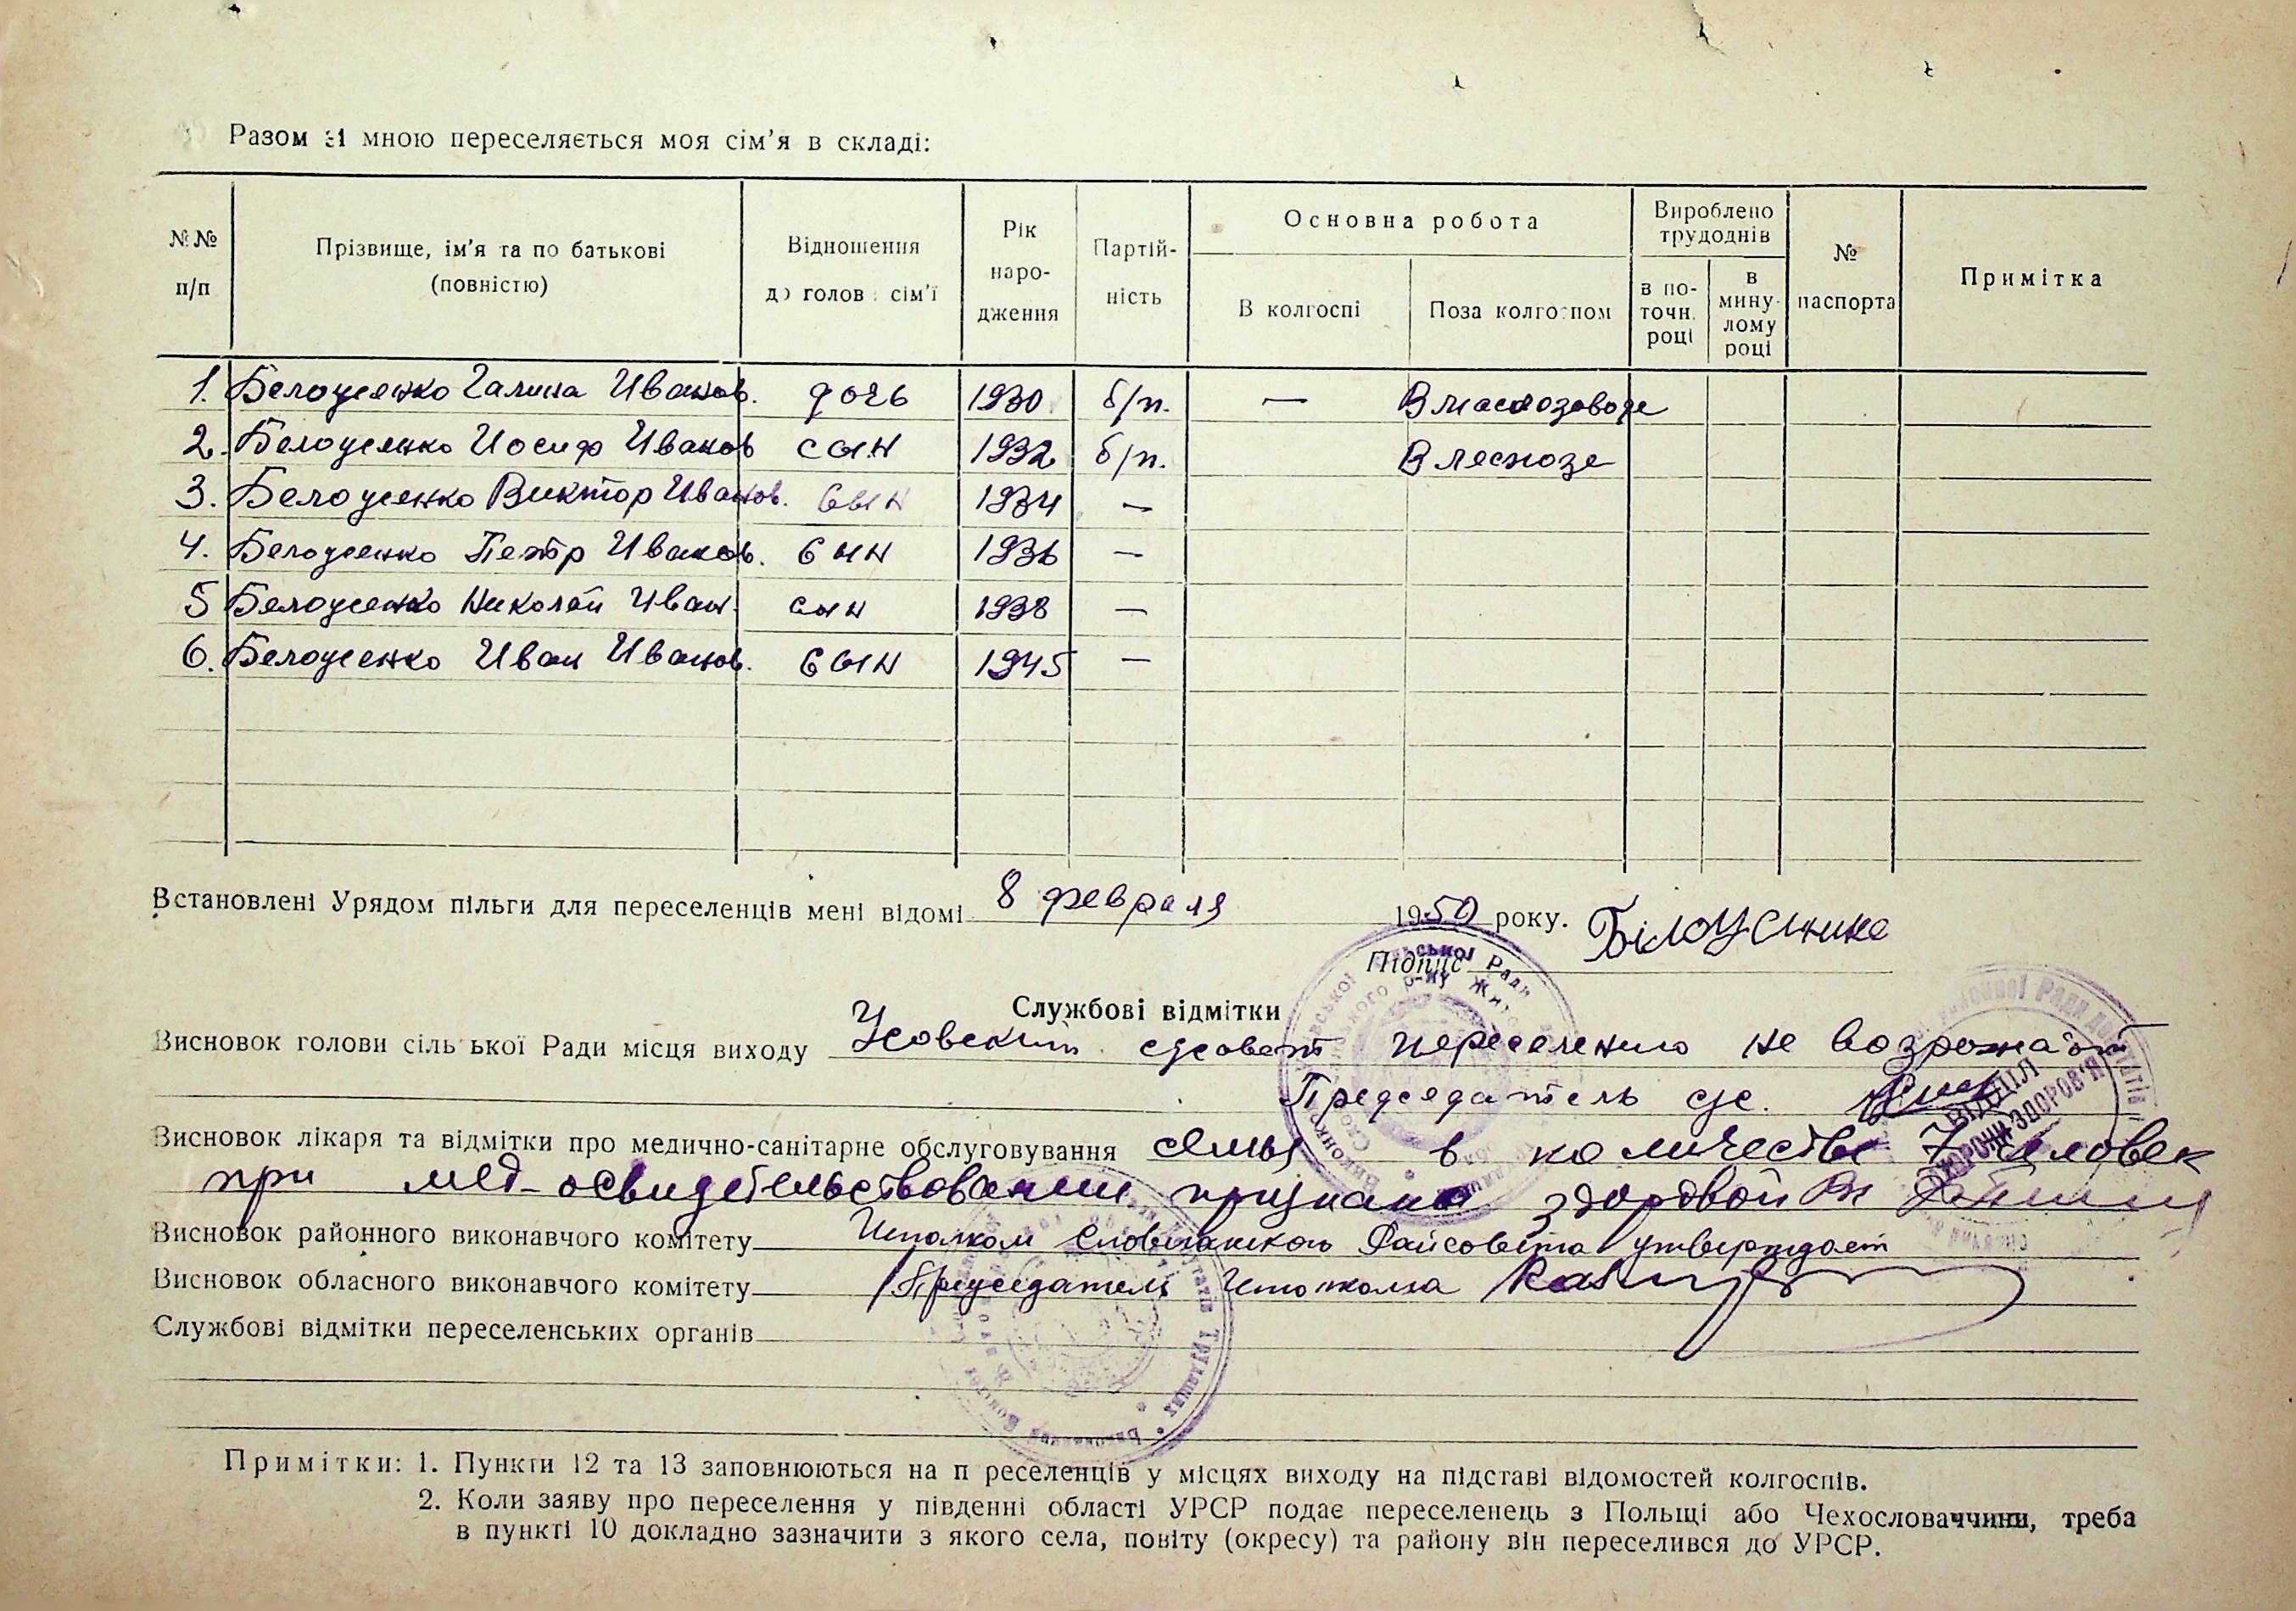 Разом зі мною переселяється моя сім'я в складі:
№№ п/п
Прізвище, ім'я та по батькові (повністю)
Відношення до голови сім'ї
Рік народження
Партійність
Основна робота
В колгоспі
Поза колгоспом
Вироблено трудоднів
в поточн. році
в минулому році
№ паспорта
Примітка
1. Белоусенко Галина Иванов. дочь 1930 б/п. — В маслозаводе
2. Белоусенко Иосиф Иванов сын 1932 б/п. В лесхозе
3. Белоусенко Виктор Иванов. сын 1934 —
4. Белоусенко Петр Иванов. сын 1936 —
5 Белоусенко Николай Иван. сын 1938 —
6. Белоусенко Иван Иванов. сын 1945 —
Встановлені Урядом пільги для переселенців мені відомі 8 февраля 1950 року.
Підпис Білоусенко
Службові відмітки
Висновок голови сільської Ради місця виходу Усовский с/совет переселению не возрожает
Председатель с/с.
Висновок лікаря та відмітки про медично-санітарне обслуговування семья в количестве 7 человек
при мед-освидетельствовании признана здоровой Вр
Висновок районного виконавчого комітету Исполком Словечанского Райсовета утверждает
Висновок обласного виконавчого комітету Председатель Исполкома
Службові відмітки переселенських органів
ВІДДІЛ
ОХОРОНИ ЗДОРОВ'Я
Примітки: 1. Пункти 12 та 13 заповнюються на п реселенців у місцях виходу на підставі відомостей колгоспів.
2. Коли заяву про переселення у південні області УРСР подає переселенець з Польщі або Чехословаччини, треба
в пункті 10 докладно зазначити з якого села, повіту (окресу) та району він переселився до УРСР.